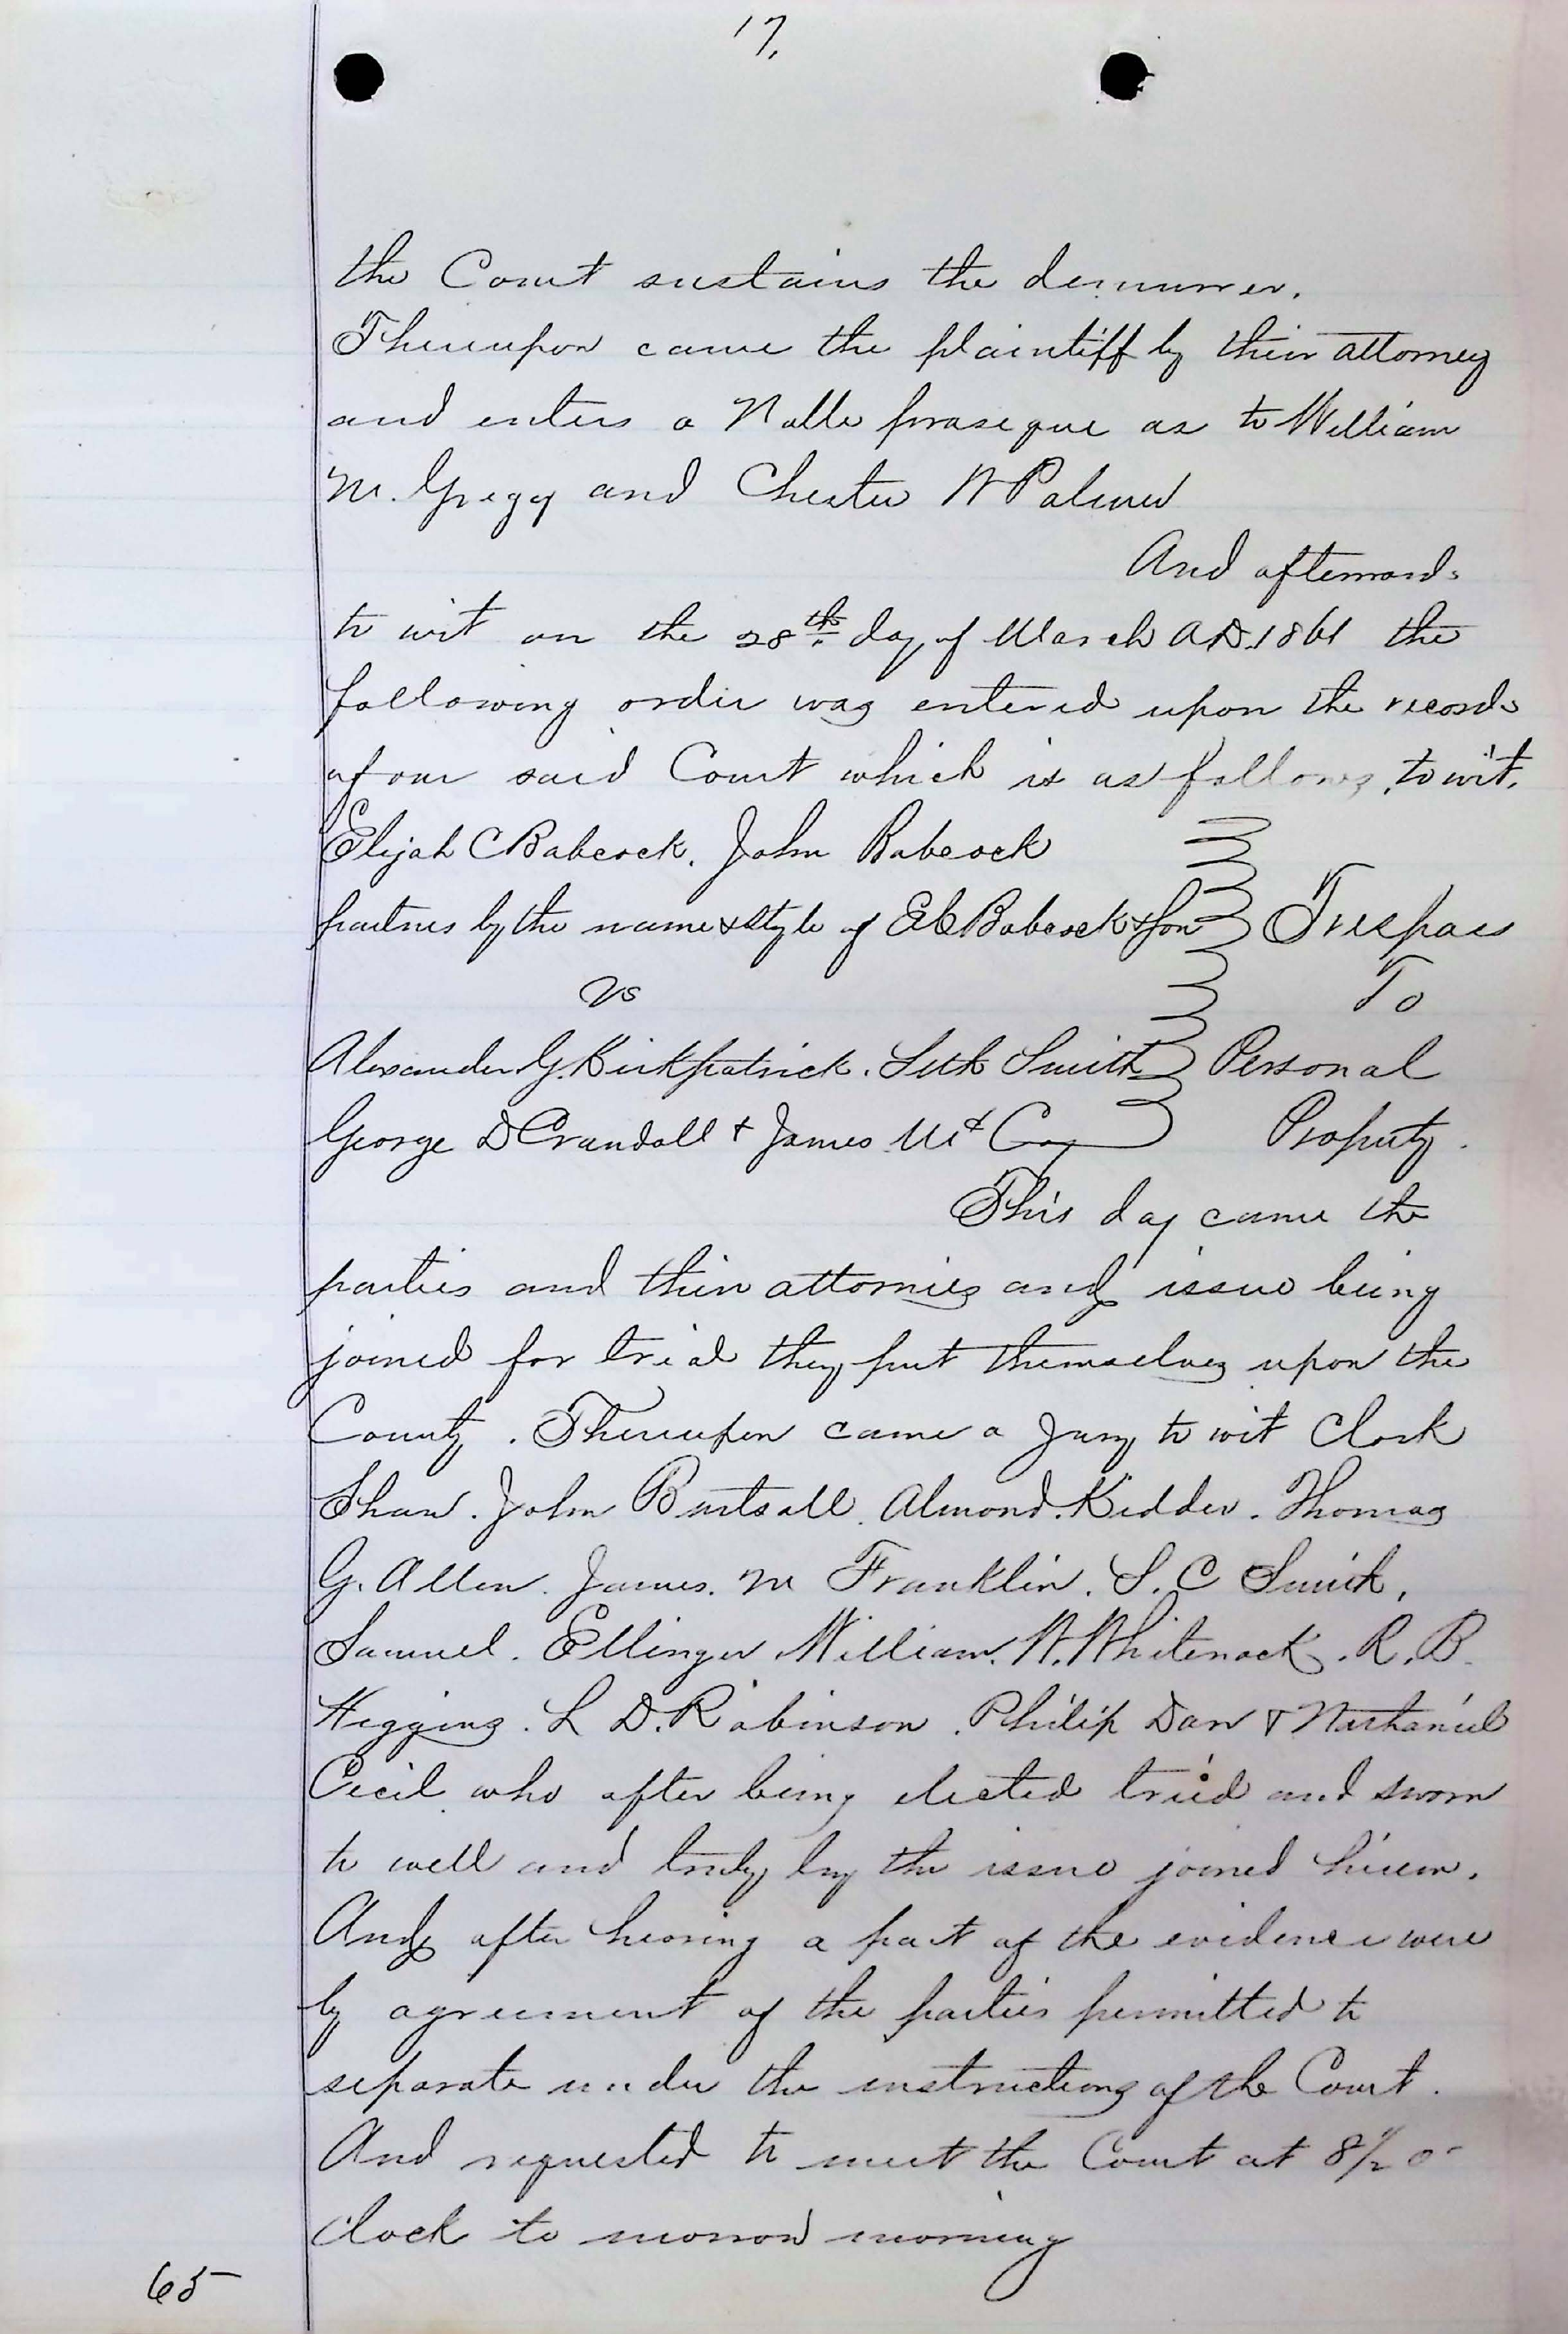 17.
the Court sustains the demurrer.
Thereupon came the plaintiff by their attorney
and enters a Nolle proseque as to William
M. Gregg and Chester W Palmer
And afterwards
to wit on the 28th day of March A.D. 1861 the
following order was entered upon the records
of our said Court which is as follows, to wit,
Elijah C Babcock. John Babcock
partners by the name & style of E C Babcock & Son } Trespass
vs To
Alexander G. Kirkpatrick. Seth Smith Personal
George D Crandall & James McCoy Property.
This day came the
parties and their attornies and issue being
joined for trial they put themselves upon the
County. Thereupon came a Jury to wit Clark
Shaw. John Birtsall. Almond. Kidder. Thomas
G. Allen. James. M Franklin. S. C Smith,
Samuel. Ellinger William. W. Whitenack. R. B.
Higgins. L D. Robinson. Philip Dan & Nathaniel
Cecil who after being elected tried and sworn
to well and truly try the issue joined herein.
And after hearing a part of the evidence were
by agreement of the parties permitted to
separate under the instructions of the Court.
And requested to meet the Court at 8 1/2 o-
clock to morrow morning
65